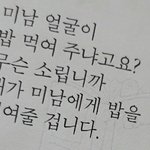 미남 얼굴이
밥 먹여 주냐고요?
무슨 소립니까
내가 미남에게 밥을
먹여줄 겁니다.